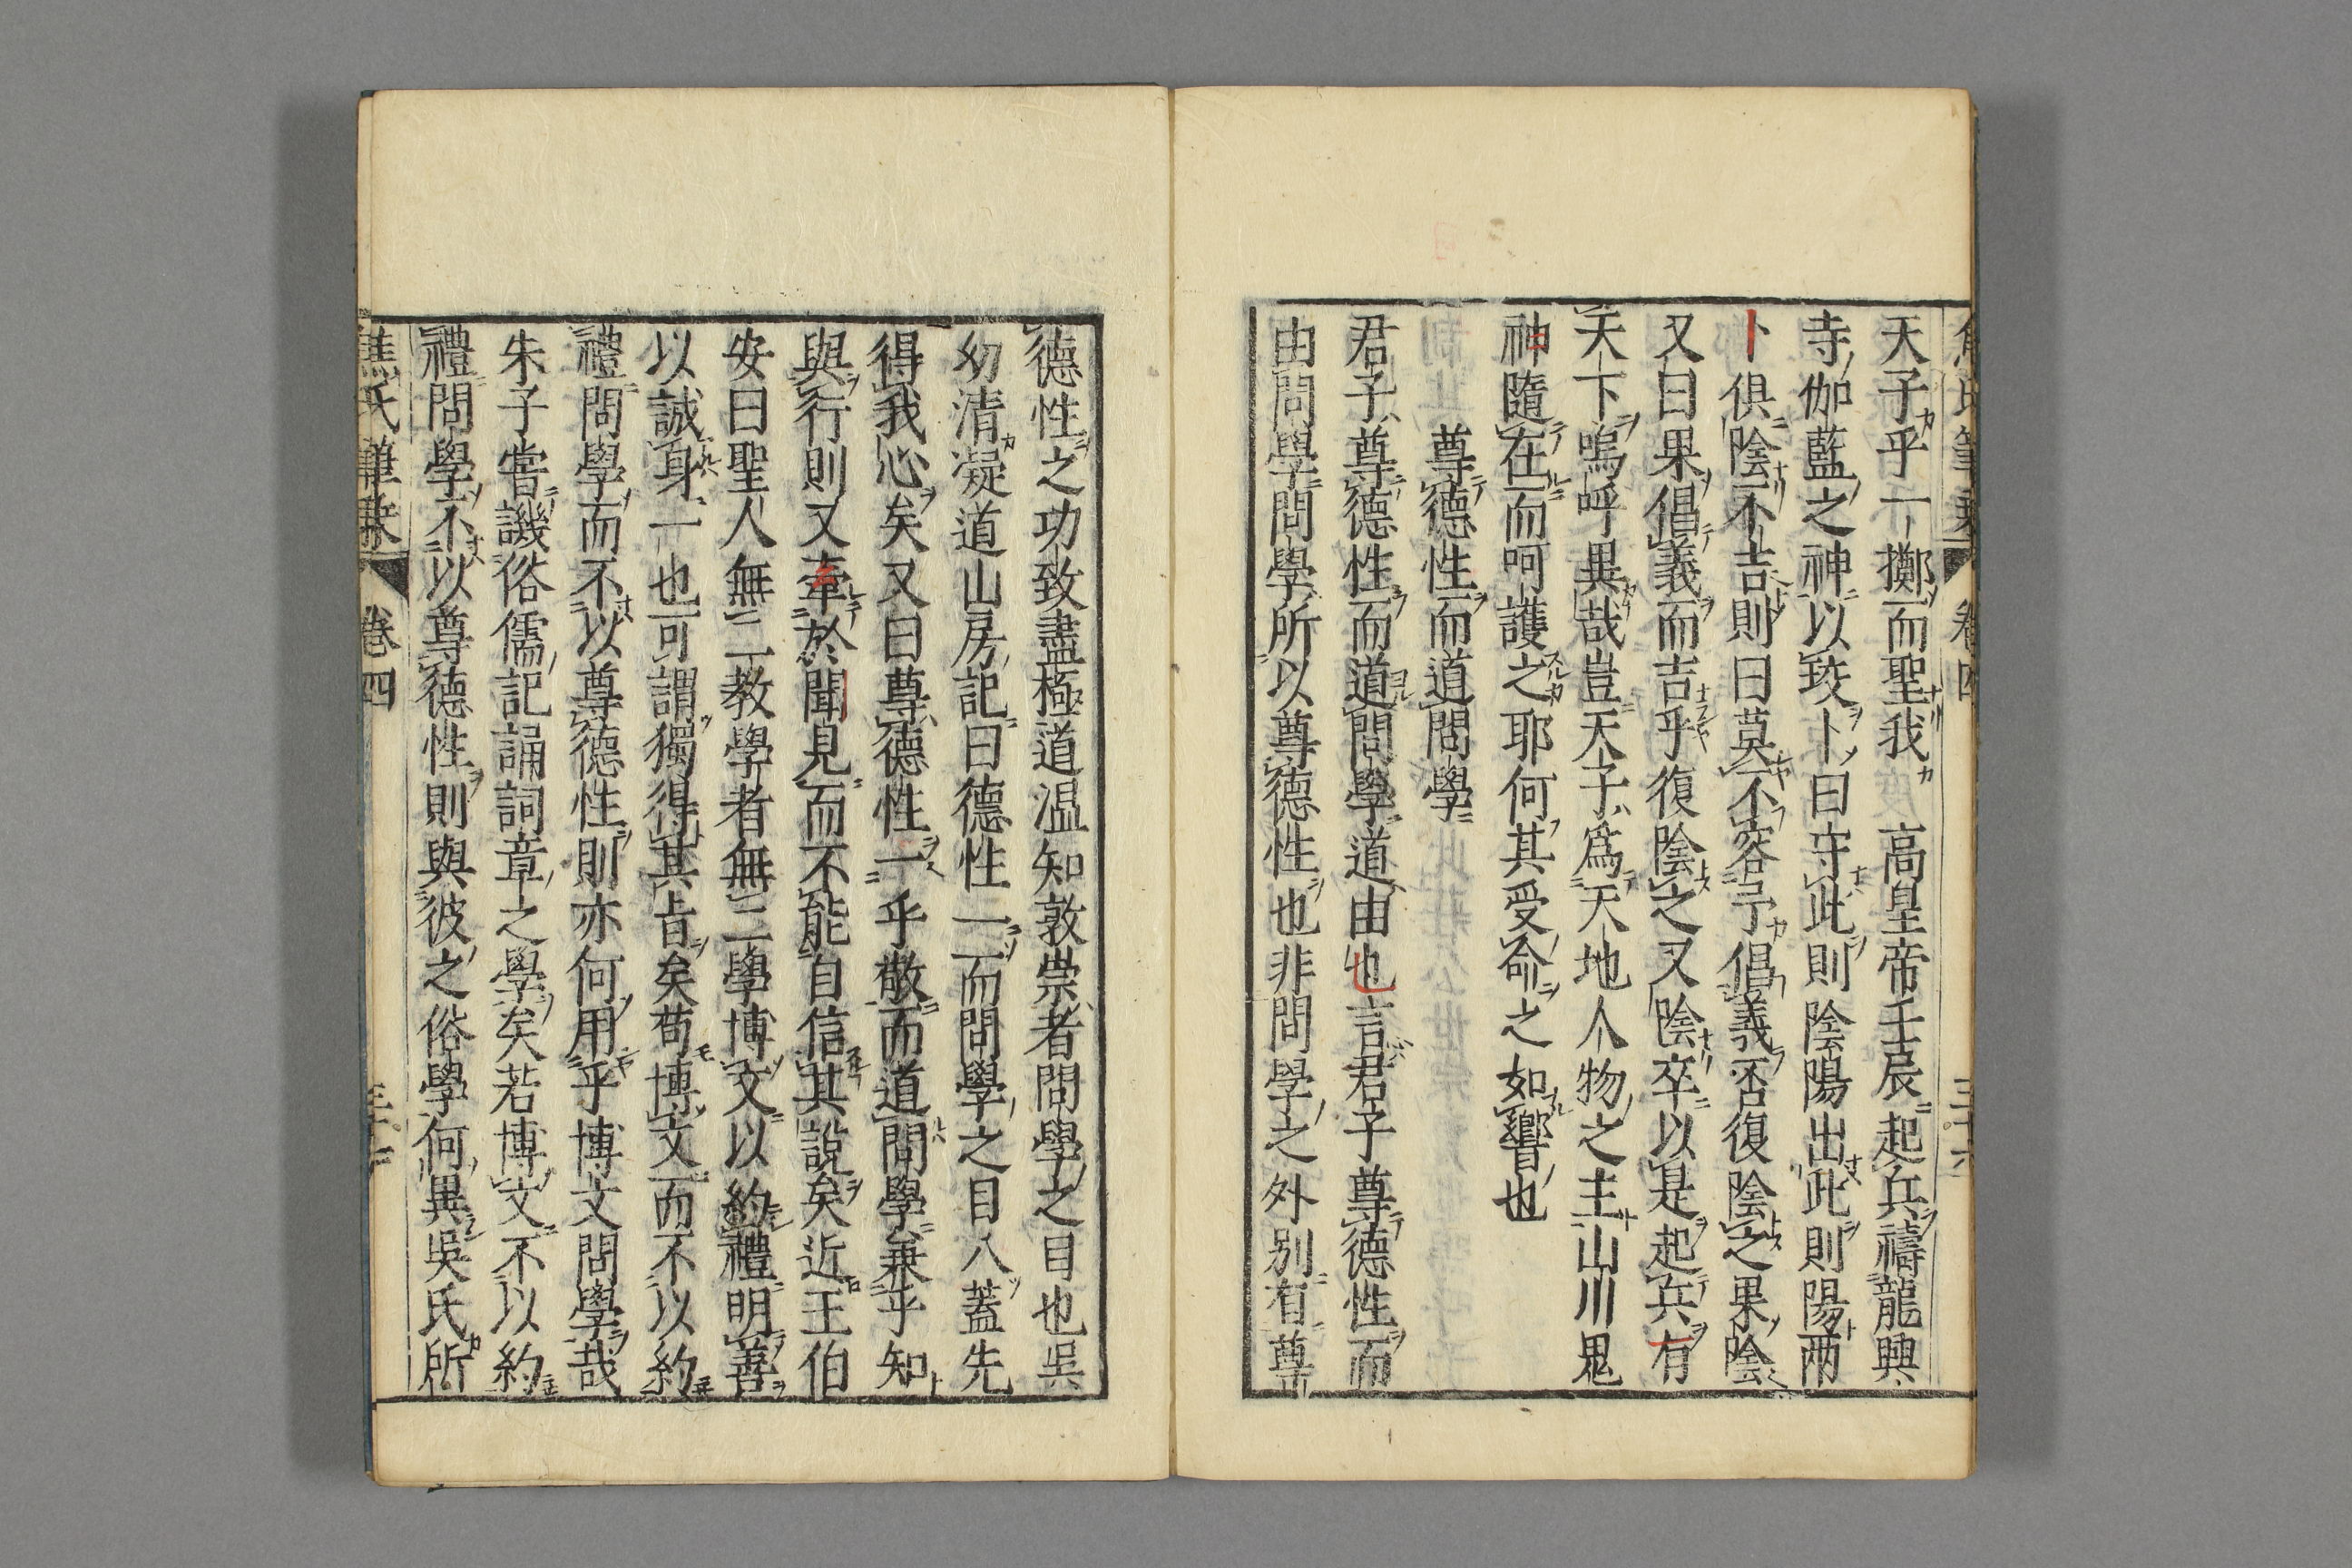 天子乎一擲而聖我　高皇帝壬辰起兵禱龍興
寺伽藍之神以珓卜曰守此則陰陽出此則陽兩
卜俱陰不吉則曰莫不容予倡義否復陰之果陰
又曰果倡義而吉乎復陰之又陰卒以是起兵有
天下嗚呼異哉豈天子為天地人物之主山川鬼
神隨在而呵護之耶何其受命之如響也
尊德性而道問學
君子尊德性而道問學道由也言君子尊德性而
由問學問學所以尊德性也非問學之外別有尊
德性之功致盡極道温知敦崇者問學之目也吳
幼清凝道山房記曰德性一而問學之目八蓋先
得我心矣又曰尊德性一乎敬而道問學兼乎知
與行則又牽於聞見而不能自信其說矣近王伯
安曰聖人無二教學者無二學博文以約禮明善
以誠身一也可謂獨得其旨矣苟博文而不以約
禮問學而不以尊德性則亦何用乎博文問學哉
朱子嘗譏俗儒記誦詞章之學矣若博文不以約
禮問學不以尊德性則與彼之俗學何異吳氏所
焦氏筆乘　卷四